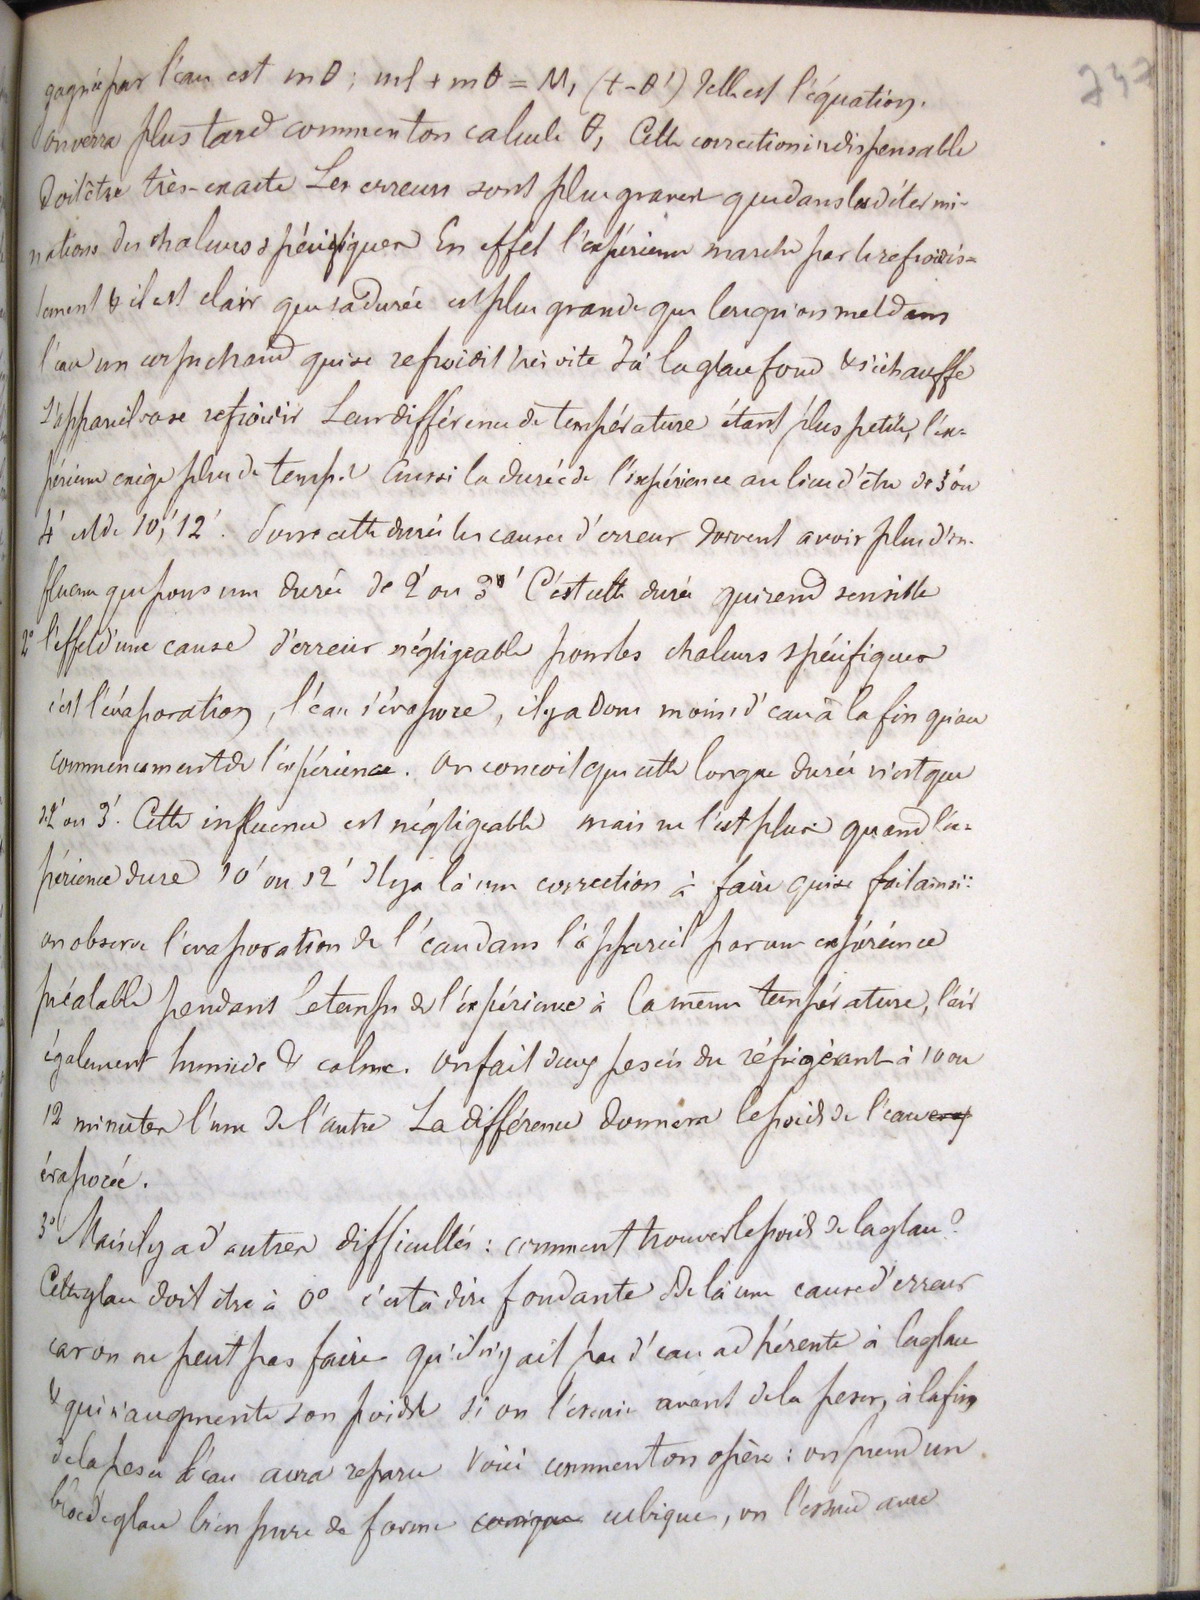 237
gagnée par l'eau est mθ ; ml + mθ = M, (t - θ') Telle est l'équation.
on verra plus tard comment on calcule θ, Cette correction indispensable
doit être très-exacte Les erreurs sont plus graves que dans les détermi-
nations des chaleurs spécifiques En effet l'expérience marche par le refroidis=
sement & il est clair que sa durée est plus grande que lorsqu'on met dans
l'eau un corps chaud qui se refroidit très vite Ici la glace fond & s'échauffe
L'appareil va se refroidir Leur différence de température étant plus petite, l'ex=
périence exige plus de temps. Aussi la durée de l'expérience au lieu d'être de 3' ou
4' est de 10', 12'. Dans cette durée les causes d'erreur doivent avoir plus d'in-
fluence que pour une durée de 2' ou 3' C'est cette durée qui rend sensible
2° l'effet d'une cause d'erreur négligeable pour les chaleurs spécifiques
c'est l'évaporation, l'eau s'évapore, il y a donc moins d'eau à la fin qu'au
commencement de l'expérience. On conçoit que cette longue durée n'est que
de 2' ou 3'. Cette influence est négligeable mais ne l'est plus quand l'ex=
périence dure 10' ou 12' Il y a là une correction à faire qui se fait ainsi :
on observe l'évaporation de l'eau dans l'appareil par une expérience
préalable pendant le temps de l'expérience à la même température, l'air
également humide & calme. On fait deux pesées du réfrigérant à 10 ou
12 minutes l'une de l'autre La différence donnera le poids de l'eau evap
évaporée.
3° Mais il y a d'autres difficultés : comment trouver le poids de la glace ?
Cette glace doit être à 0° c'est à dire fondante De là une cause d'erreur
car on ne peut pas faire qu'il n'y ait pas d'eau adhérente à la glace
& qui n'augmente son poids Si on l'essuie avant de la peser, à la fin
de la pesée l'eau aura reparu Voici comment on opère : on prend un
bloc de glace bien pure de forme conique cubique, on l'essuie avec